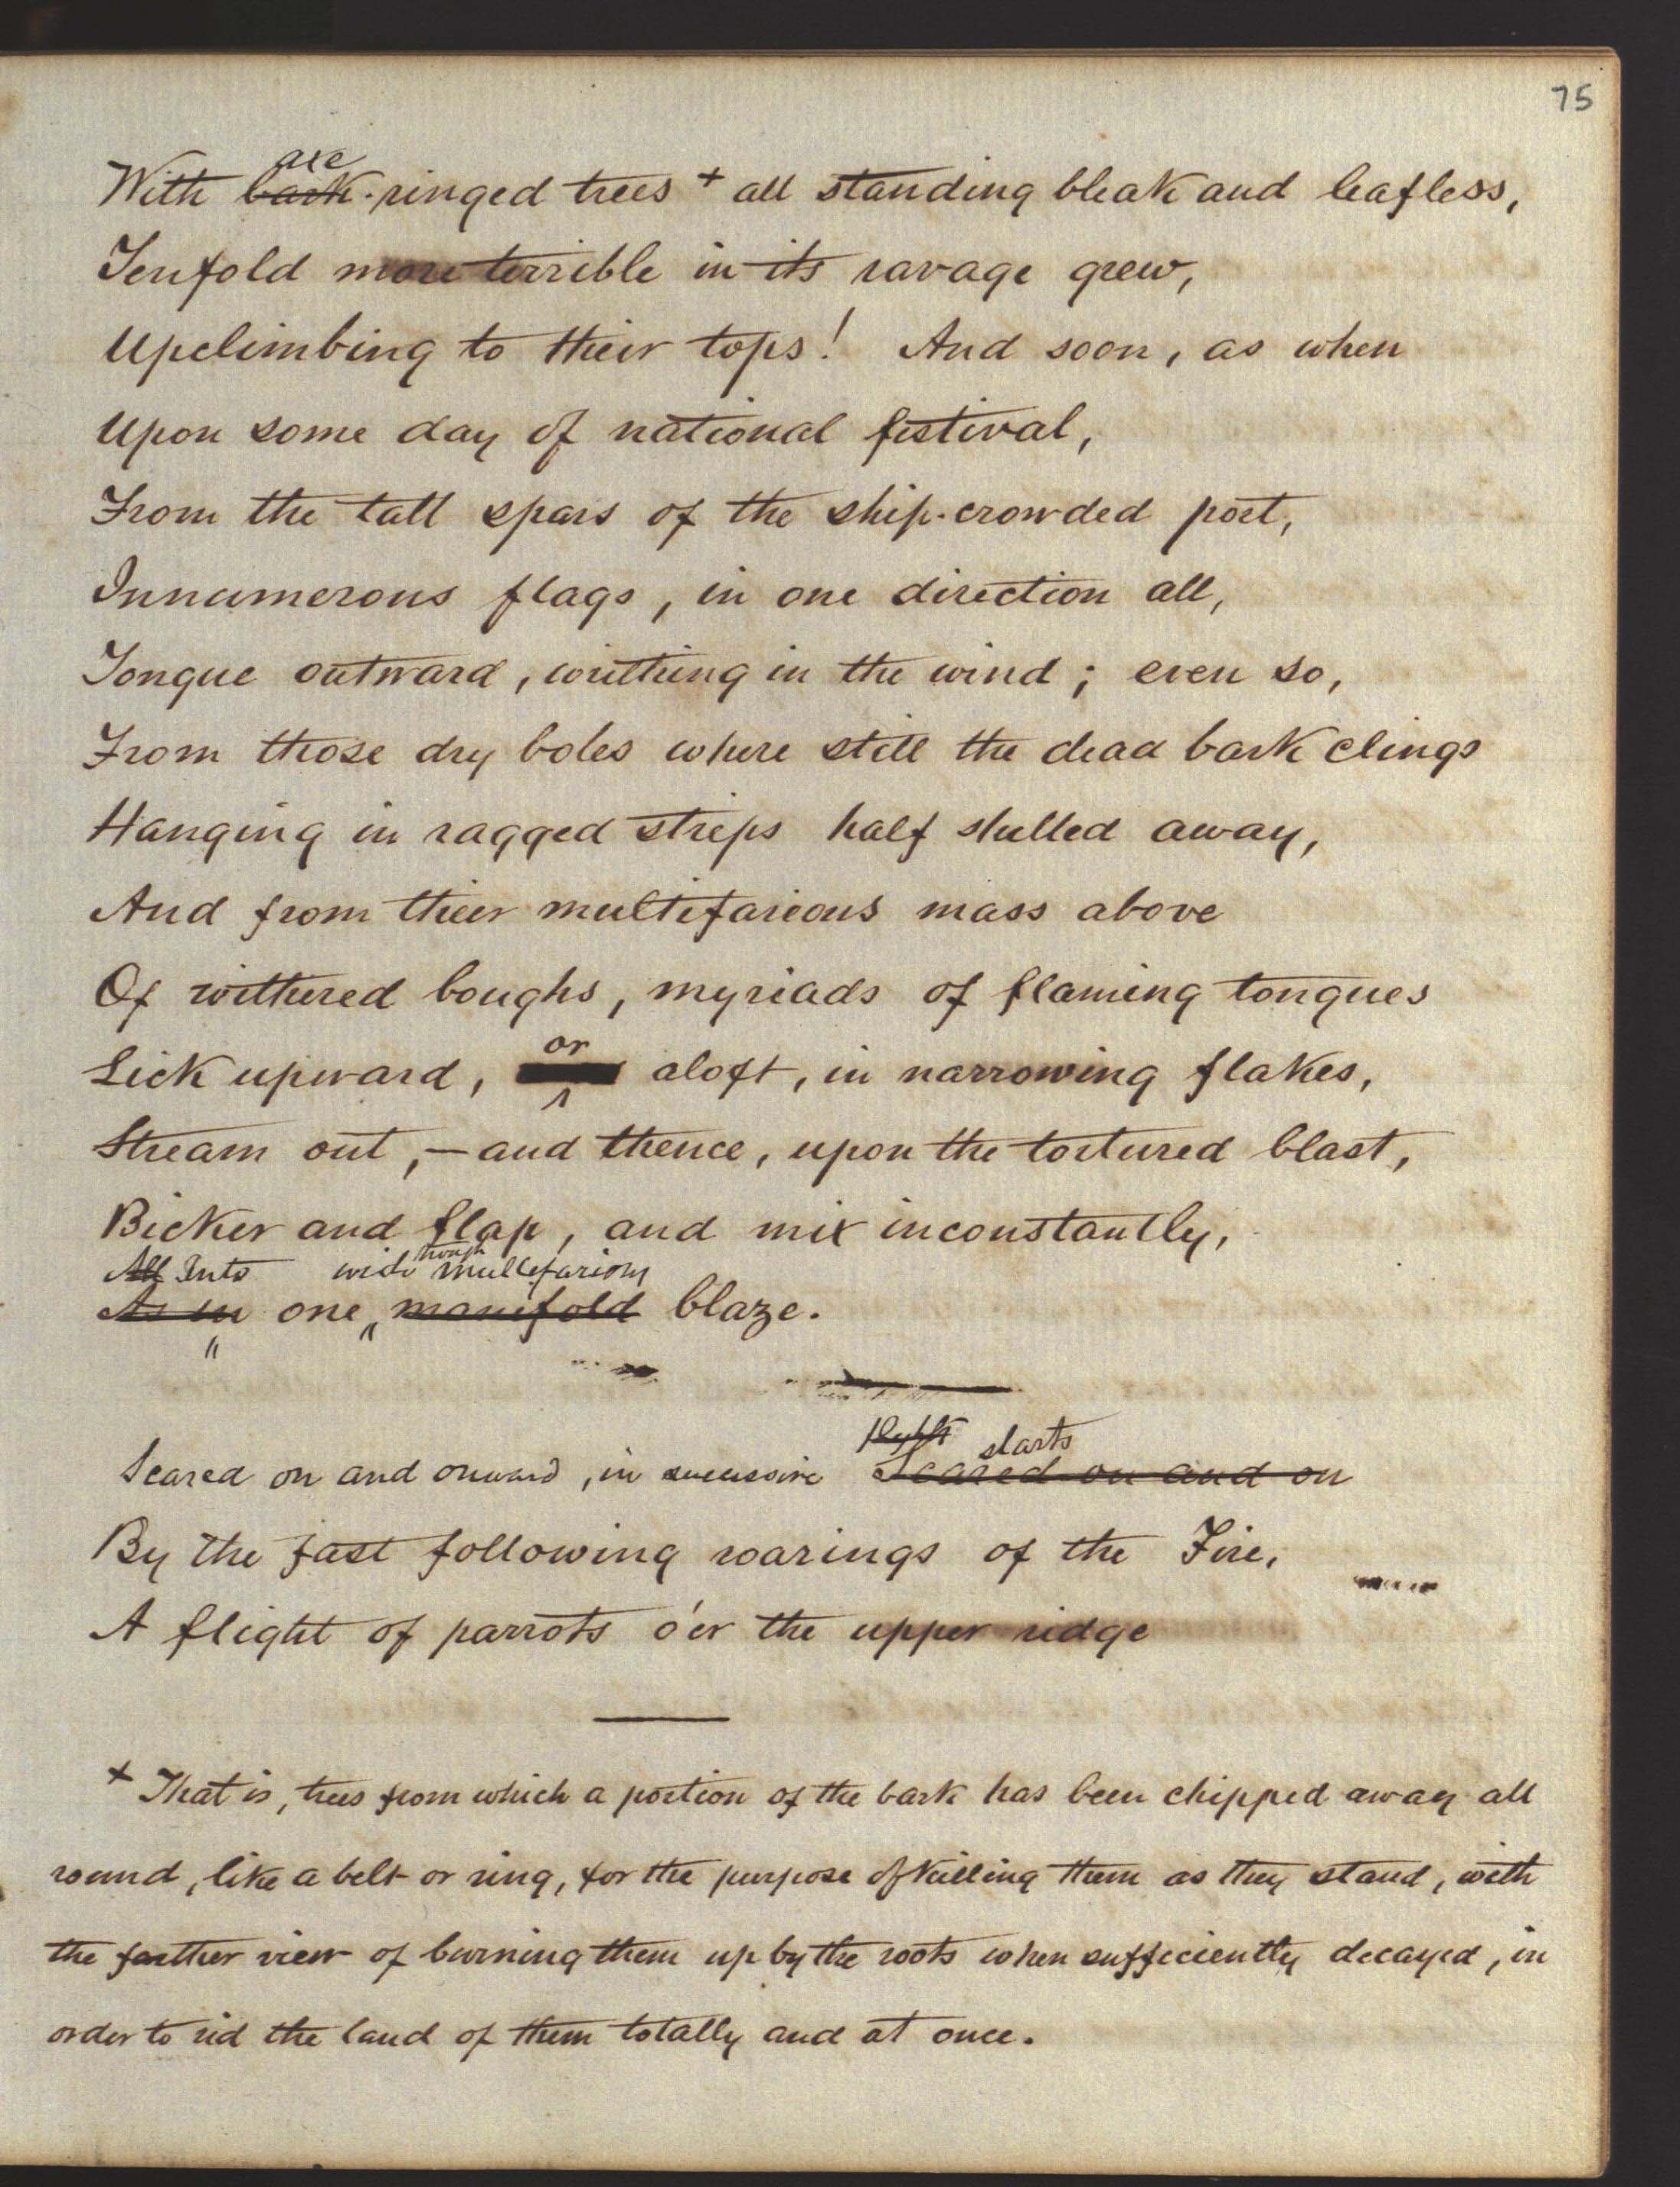 75
axe
With bark-ringed trees + all standing bleak and leafless,
Tenfold more terrible in its ravage grew,
Upclimbing to their tops! And soon, as when
Upon some day of national festival,
From the tall spars of the ship-crowded port,
Innumerous flags, in one direction all,
Tongue outward, writhing in the wind; even so,
From those dry boles where still the dead bark clings
Hanging in ragged strips half shelled away,
And from their multifarious mass above
Of withered boughs, myriads of flaming tongues
or
Lick upward, aloft, in narrowing flakes,
Stream out,—and thence, upon the tortured blast,
Bicker and flap, and mix inconstantly,
though
All Into wide multifarious
As in one manifold blaze.
starts
Scared on and onward, in successive Scared on and on
By the fast following roarings of the Fire,
A flight of parrots o'er the upper ridge
+ That is, trees from which a portion of the bark has been chipped away all
round, like a belt or ring, for the purpose of killing them as they stand, with
the farther view of burning them up by the roots when sufficiently decayed, in
order to rid the land of them totally and at once.